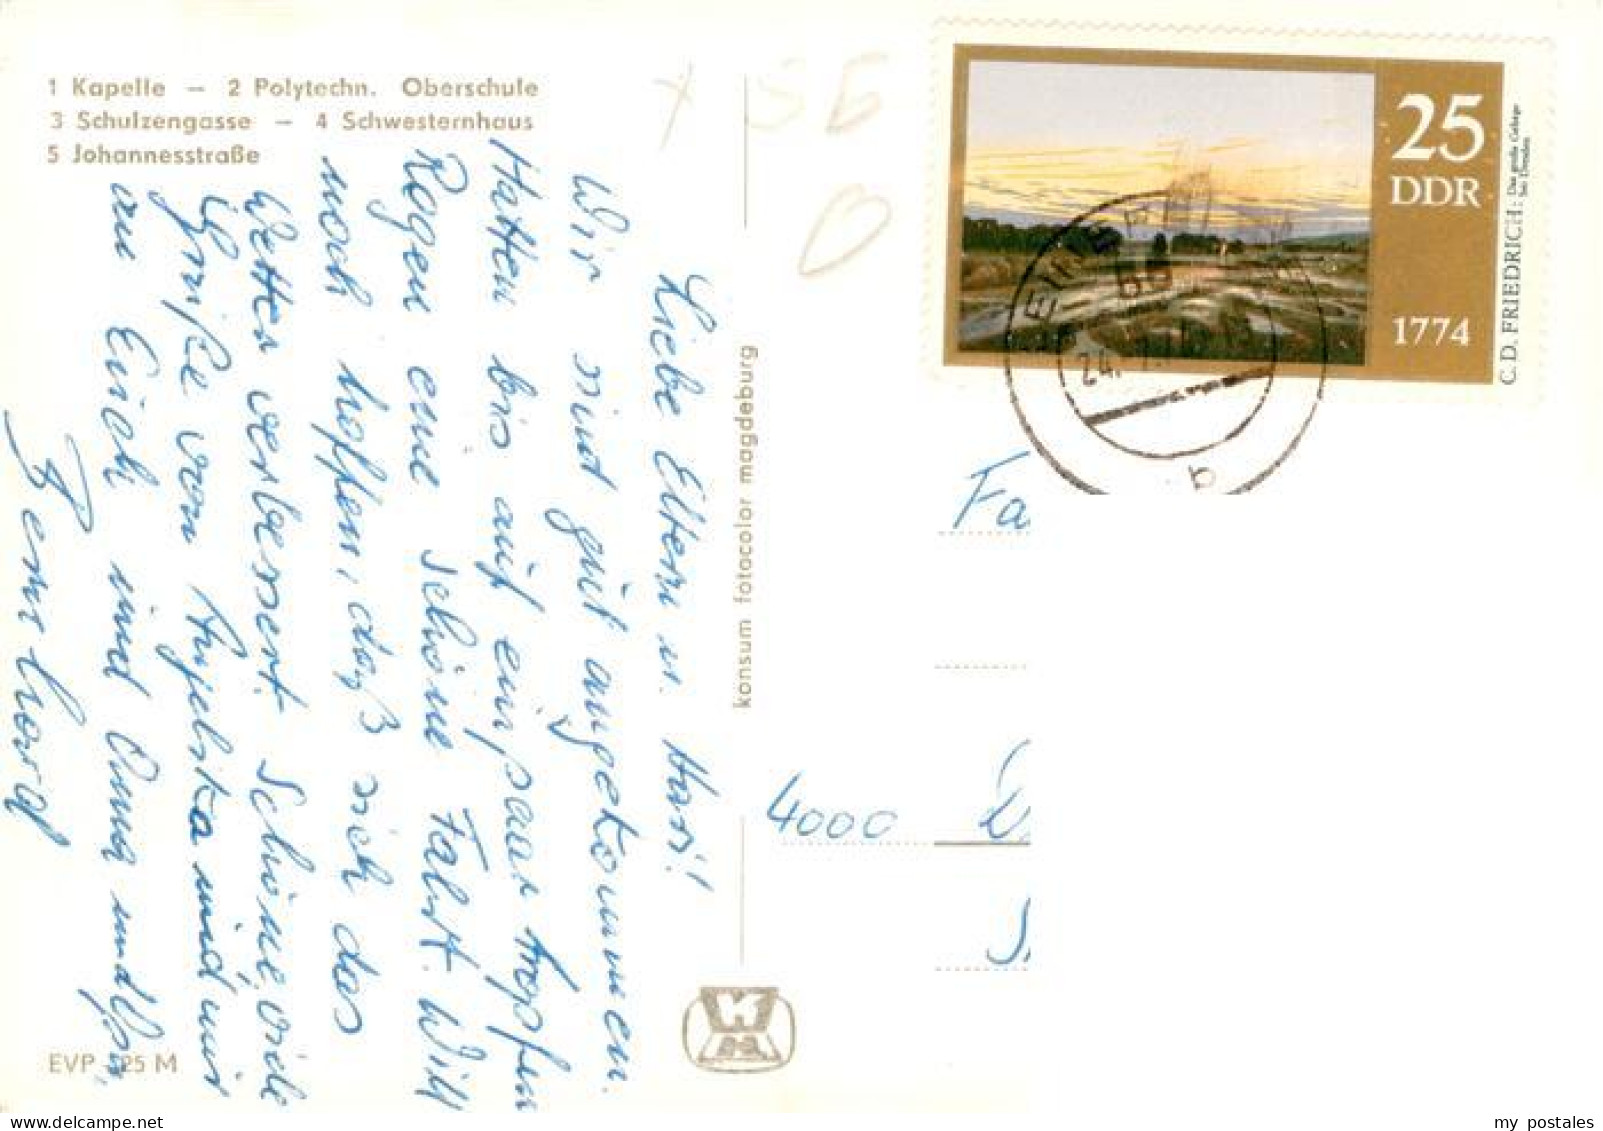 1 Kapelle — 2 Polytechn. Oberschule
3 Schulzengasse — 4 Schwesternhaus
5 Johannesstraße
Liebe Eltern u. Hans!
Wir sind gut angekommen.
Hatten bis auf ein paar tropfen
Regen eine schöne Fahrt. Will
noch hoffen, daß sich das
Wetter verbessert. Schöne, viele
Grüße von und mir
an Euch und Oma
Bernhard
EVP -,25 M
konsum fotocolor magdeburg
25
DDR
1774
C. D. FRIEDRICH: Das große Gehege
bei Dresden
24.
b
Fa
4000
my postales